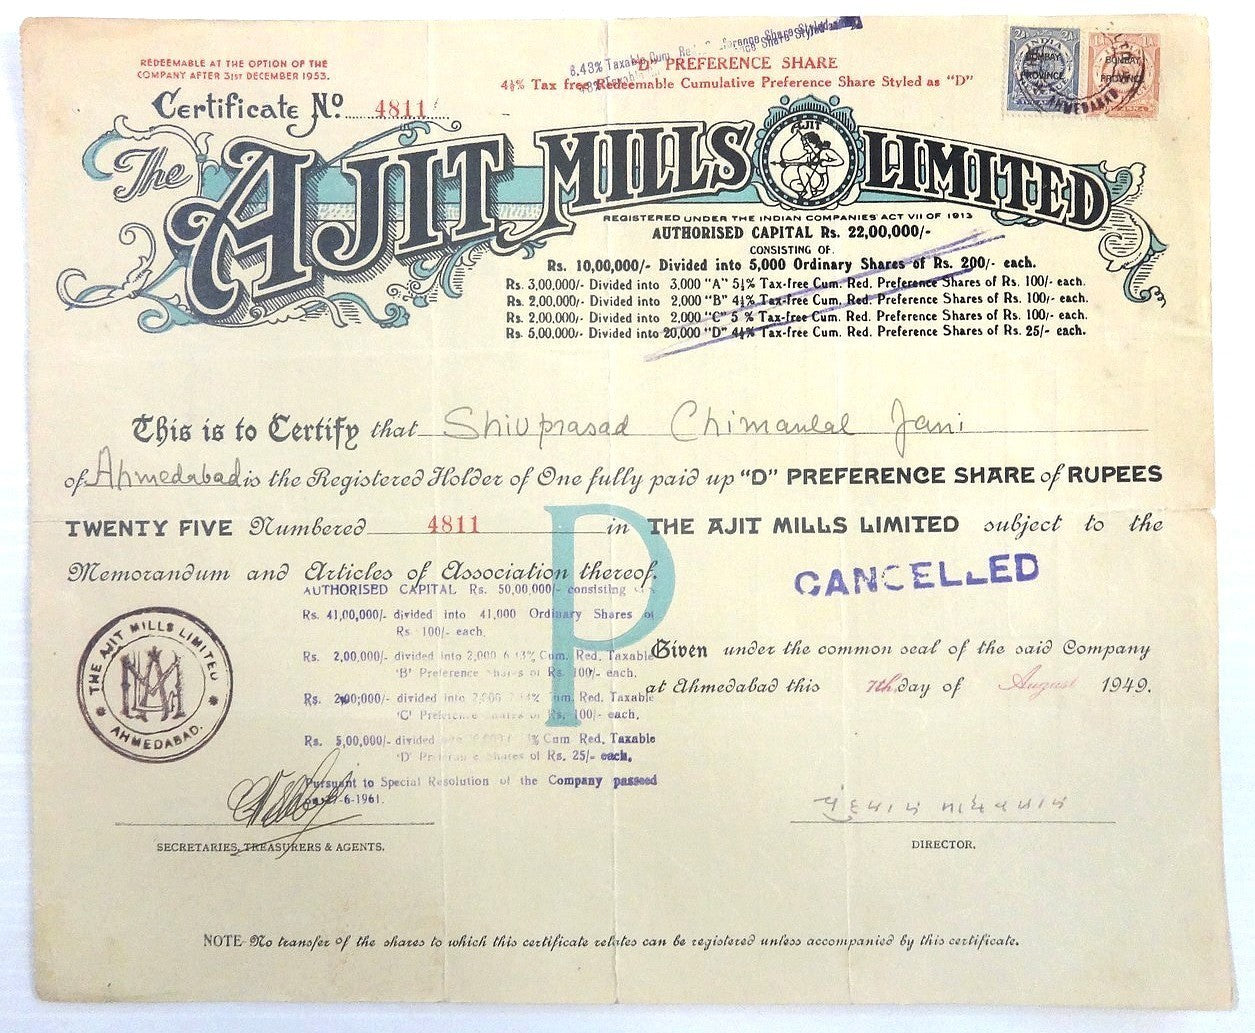 REDEEMABLE AT THE OPTION OF THE
COMPANY AFTER 31ST DECEMBER 1953.
6.43% Taxable Cum. Preference Share Styled
"D" PREFERENCE SHARE
4½% Tax free Redeemable Cumulative Preference Share Styled as "D"
INDIA
BOMBAY PROVINCE
BOMBAY PROVINCE
AHMEDABAD
Certificate No. 4811
The AJIT MILLS LIMITED
AJIT
REGISTERED UNDER THE INDIAN COMPANIES' ACT VII OF 1913
AUTHORISED CAPITAL Rs. 22,00,000/-
CONSISTING OF.
Rs. 10,00,000/- Divided into 5,000 Ordinary Shares of Rs. 200/- each.
Rs. 3,00,000/- Divided into 3,000 "A" 5¼% Tax-free Cum. Red. Preference Shares of Rs. 100/- each.
Rs. 2,00,000/- Divided into 2,000 "B" 4½% Tax-free Cum. Red. Preference Shares of Rs. 100/- each.
Rs. 2,00,000/- Divided into 2,000 "C" 5 % Tax-free Cum. Red. Preference Shares of Rs. 100/- each.
Rs. 5,00,000/- Divided into 20,000 "D" 4½% Tax-free Cum. Red. Preference Shares of Rs. 25/- each.
This is to Certify that Shivprasad Chimanlal Jani
of Ahmedabad is the Registered Holder of One fully paid up "D" PREFERENCE SHARE of RUPEES
TWENTY FIVE Numbered 4811 in THE AJIT MILLS LIMITED subject to the
Memorandum and Articles of Association thereof.
P
CANCELLED
AUTHORISED CAPITAL Rs. 50,00,000/- consisting of
Rs. 41,00,000/- divided into 41,000 Ordinary Shares of
Rs 100/- each.
Rs. 2,00,000/- divided into 2,000 6.43% Cum. Red. Taxable
'B' Preference Shares of Rs. 100/- each.
Rs. 2,00,000/- divided into 2,000 Cum. Red. Taxable
'C' Preference Shares of Rs. 100/- each.
Rs. 5,00,000/- divided Cum Red. Taxable
'D' Preference Shares of Rs. 25/- each.
Pursuant to Special Resolution of the Company passed
-6-1961.
Given under the common seal of the said Company
at Ahmedabad this 7th day of August 1949.
THE AJIT MILLS LIMITED
AHMEDABAD.
SECRETARIES, TREASURERS & AGENTS.
DIRECTOR.
NOTE-No transfer of the shares to which this certificate relates can be registered unless accompanied by this certificate.